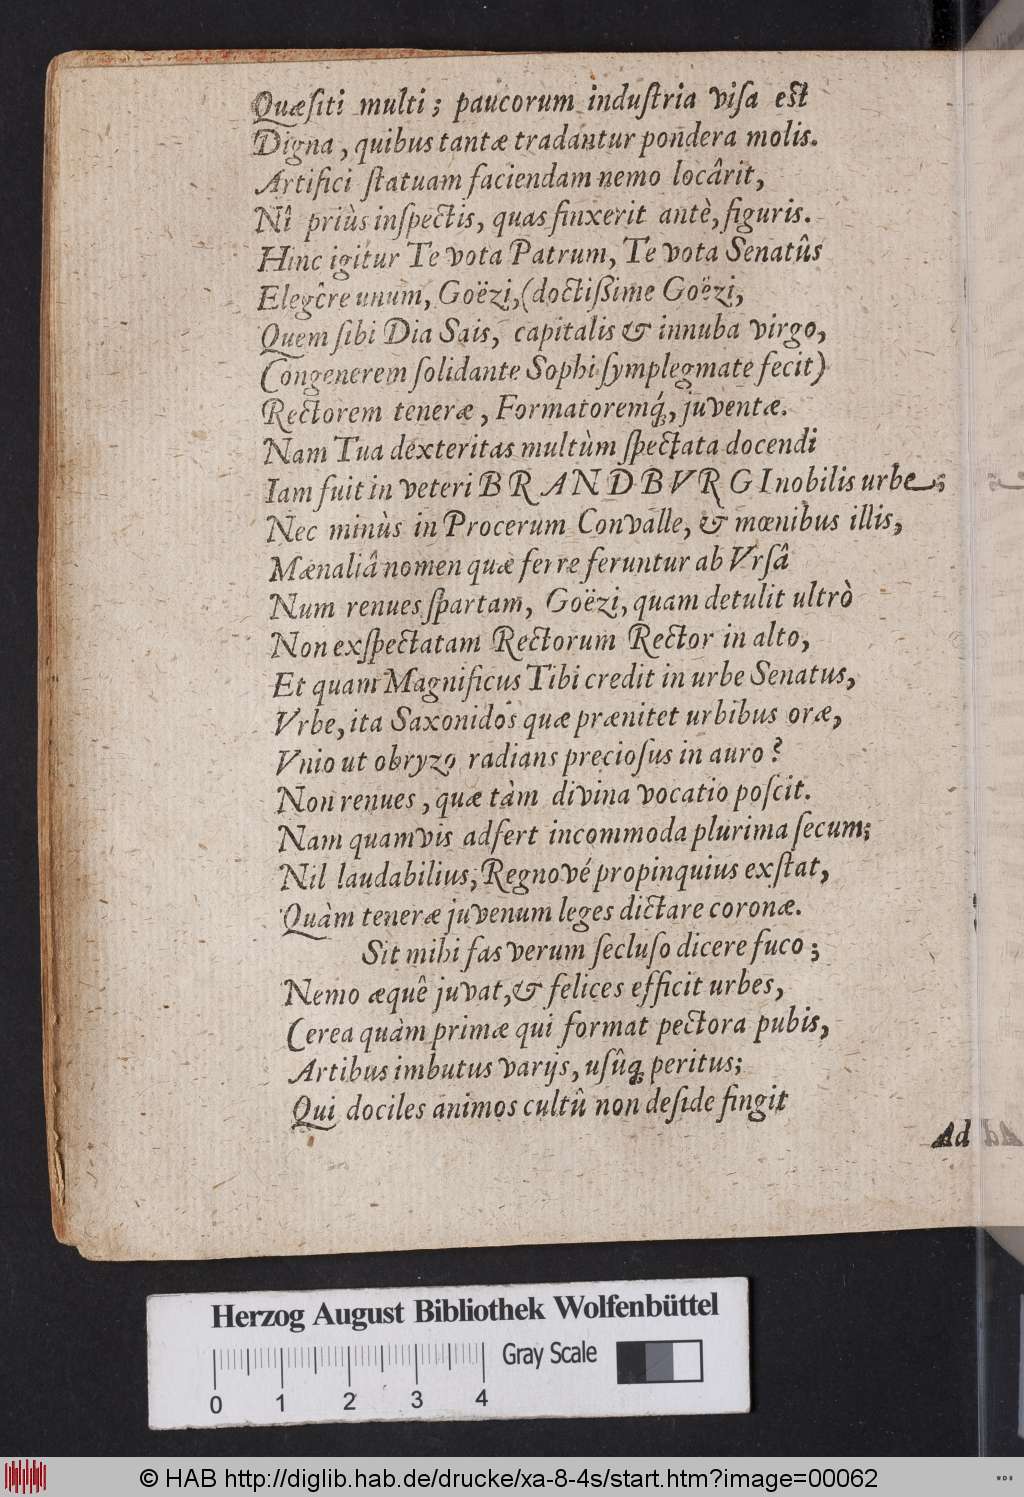 Quæſiti multi; paucorum induſtria viſa eſt
Digna, quibus tantæ tradantur pondera molis.
Artifici ſtatuam faciendam nemo locârit,
Nî priùs inſpectis, quas finxerit antè, figuris.
Hinc igitur Te vota Patrum, Te vota Senatûs
Elegêre unum, Goëzi, (doctiſſime Goëzi,
Quem ſibi Dia Sais, capitalis & innuba virgo,
Congenerem ſolidante Sophi ſymplegmate fecit)
Rectorem teneræ, Formatoremq́;, juventæ.
Nam Tua dexteritas multùm ſpectata docendi
Iam fuit in veteri BRANDBVRGI nobilis urbe;
Nec minùs in Procerum Convalle, & mœnibus illis,
Mænaliâ nomen quæ ferre feruntur ab Vrſâ
Num renues ſpartam, Goëzi, quam detulit ultrò
Non exſpectatam Rectorum Rector in alto,
Et quam Magnificus Tibi credit in urbe Senatus,
Vrbe, ita Saxonidos quæ prænitet urbibus oræ,
Vnio ut obryzo radians precioſus in auro?
Non renues, quæ tàm divina vocatio poſcit.
Nam quamvis adfert incommoda plurima ſecum;
Nil laudabilius, Regnové propinquius exſtat,
Quàm teneræ juvenum leges dictare coronæ.
Sit mihi fas verum ſecluſo dicere fuco;
Nemo æquê juvat, & felices efficit urbes,
Cerea quàm primæ qui format pectora pubis,
Artibus imbutus varijs, uſûq; peritus;
Qui dociles animos cultû non deſide fingit
Ad
Herzog August Bibliothek Wolfenbüttel
Gray Scale
0 1 2 3 4
© HAB http://diglib.hab.de/drucke/xa-8-4s/start.htm?image=00062